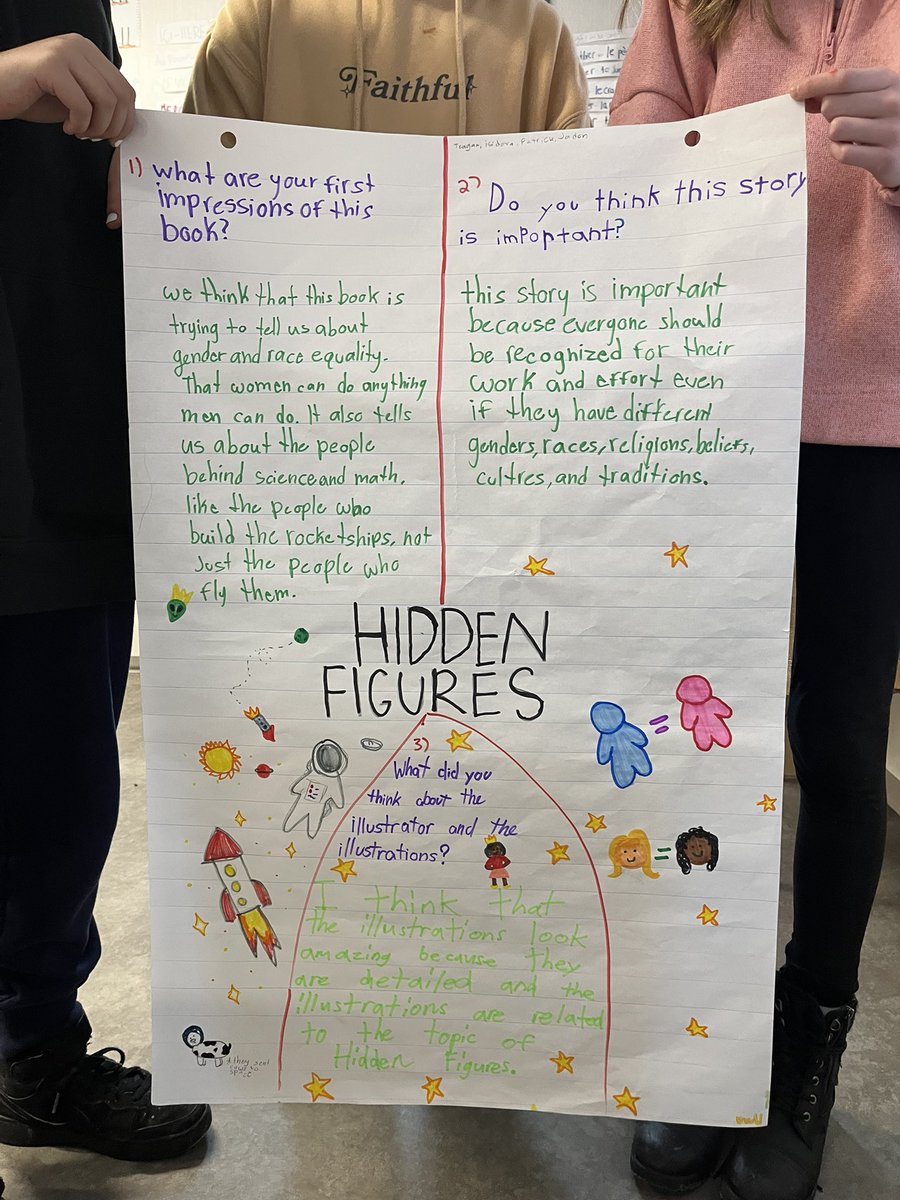 Faithful
1) what are your first
impressions of this
book?
we think that this book is
trying to tell us about
gender and race equality.
That women can do anything
men can do. It also tells
us about the people
behind science and math.
like the people who
build the rocketships, not
Just the people who
fly them.
Teagan, Isidora, Patrick, Jadon
2) Do you think this story
is impoptant?
this story is important
because everyone should
be recognized for their
work and effort even
if they have different
genders, races, religions, beliefs,
cultres, and traditions.
HIDDEN
FIGURES
3)
What did you
think about the
illustrator and the
illustrations?
I think that
the illustrations look
amazing because they
are detailed and the
illustrations are related
to the topic of
Hidden Figures.
=
=
* they sent
cows to
space